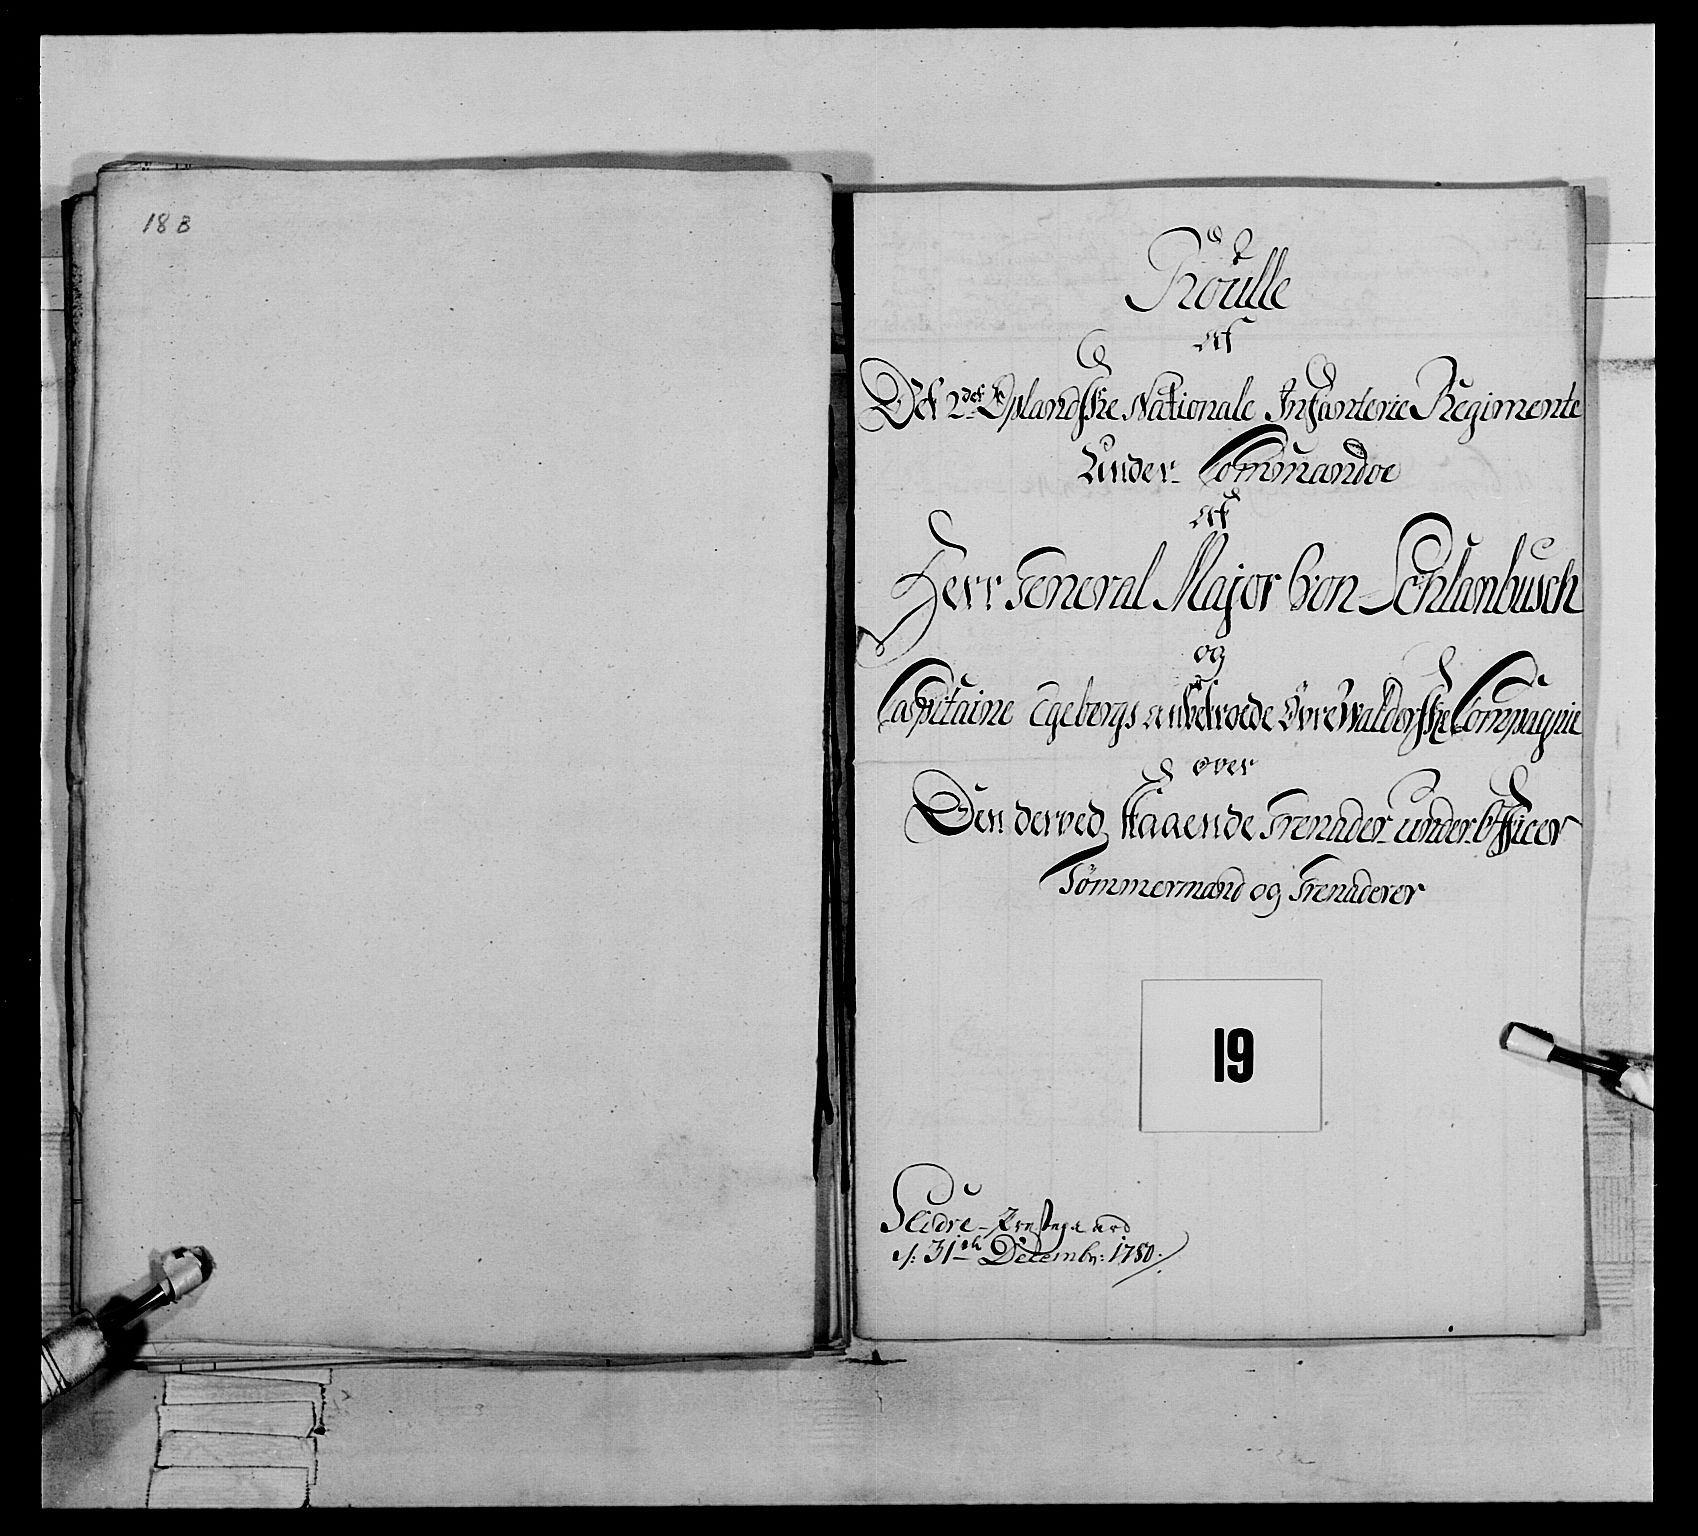 18 B
Roulle
af
Det 2det Oplandske Nationale Infanterie Regimente
Under Commandoe
af
Herr General Major Von Schlanbusch
og
Capitaine Egebergs anbetroede Øvre Walderske Compagnie
over
Den derved staaende Grenader-under Officer
Tømmermænd og Grenaderer
19
Slidre-Præstegaard
d: 31te Decembr: 1750.